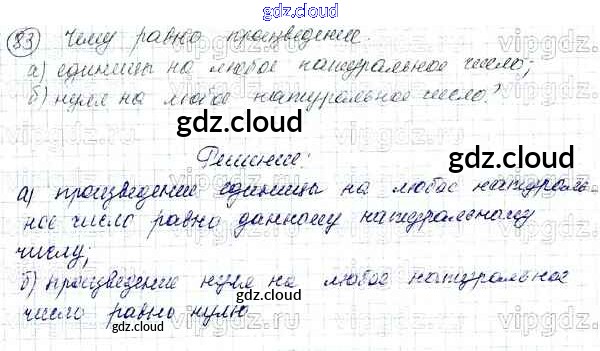 gdz.cloud
83 Чему равно произведение:
а) единицы на любое натуральное число;
б) нуля на любое натуральное число?
gdz.cloud
gdz.cloud
Решение:
а) произведение единицы на любое натураль-
ное число равно данному натуральному
числу;
б) произведение нуля на любое натуральное
gdz.cloud
число равно нулю
gdz.cloud
vipgdz.ru